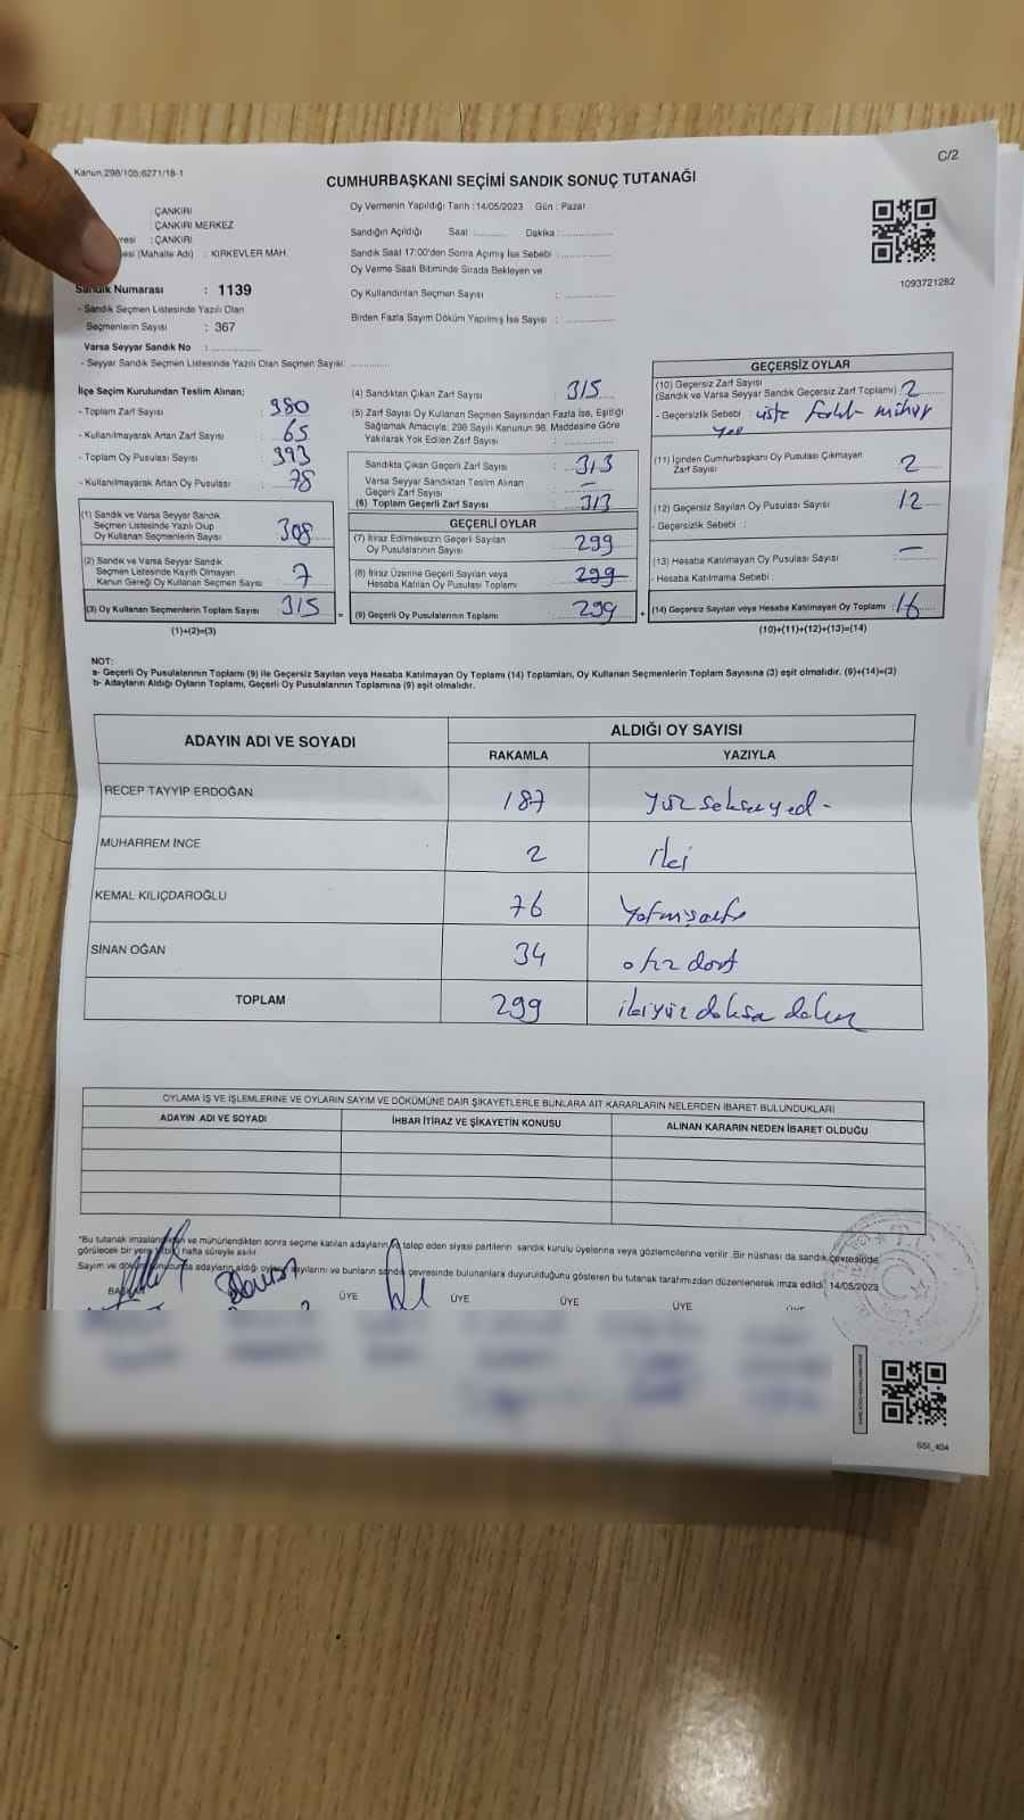 C/2
Kanun 298/105;6271/18-1
CUMHURBAŞKANI SEÇİMİ SANDIK SONUÇ TUTANAĞI
: ÇANKIRI
: ÇANKIRI MERKEZ
resi : ÇANKIRI
esi (Mahalle Adı) : KIRKEVLER MAH.
Sandık Numarası : 1139
- Sandık Seçmen Listesinde Yazılı Olan
Seçmenlerin Sayısı : 367
Varsa Seyyar Sandık No :
- Seyyar Sandık Seçmen Listesinde Yazılı Olan Seçmen Sayısı:
Oy Vermenin Yapıldığı Tarih : 14/05/2023 Gün : Pazar
Sandığın Açıldığı Saat Dakika :
Sandık Saat 17:00'den Sonra Açımış İse Sebebi
Oy Verme Saati Bitiminde Sırada Bekleyen ve
Oy Kullandırılan Seçmen Sayısı :
Birden Fazla Sayım Döküm Yapılmış İse Sayısı :
1093721282
İlçe Seçim Kurulundan Teslim Alınan;
- Toplam Zarf Sayısı : 380
- Kullanılmayarak Artan Zarf Sayısı : 65
- Toplam Oy Pusulası Sayısı : 393
- Kullanılmayarak Artan Oy Pusulası : 78
(1) Sandık ve Varsa Seyyar Sandık
Seçmen Listesinde Yazılı Olup
Oy Kullanan Seçmenlerin Sayısı 308
(2) Sandık ve Varsa Seyyar Sandık
Seçmen Listesinde Kayıtlı Olmayan
Kanun Gereği Oy Kullanan Seçmen Sayısı 7
(3) Oy Kullanan Seçmenlerin Toplam Sayısı 315
(1)+(2)=(3)
(4) Sandıktan Çıkan Zarf Sayısı : 315
(5) Zarf Sayısı Oy Kullanan Seçmen Sayısından Fazla İse, Eşitliği
Sağlamak Amacıyla; 298 Sayılı Kanunun 98. Maddesine Göre
Yakılarak Yok Edilen Zarf Sayısı :
Sandıkta Çıkan Geçerli Zarf Sayısı : 313
Varsa Seyyar Sandıktan Teslim Alınan
Geçerli Zarf Sayısı : -
(6) Toplam Geçerli Zarf Sayısı : 313
GEÇERLİ OYLAR
(7) İtiraz Edilmeksizin Geçerli Sayılan
Oy Pusulalarının Sayısı : 299
(8) İtiraz Üzerine Geçerli Sayılan veya
Hesaba Katılan Oy Pusulası Toplamı : 299
= (9) Geçerli Oy Pusulalarının Toplamı : 299 +
GEÇERSİZ OYLAR
(10) Geçersiz Zarf Sayısı
(Sandık ve Varsa Seyyar Sandık Geçersiz Zarf Toplamı) : 2
- Geçersizlik Sebebi : üste farklı mühür
(11) İçinden Cumhurbaşkanı Oy Pusulası Çıkmayan
Zarf Sayısı : 2
(12) Geçersiz Sayılan Oy Pusulası Sayısı : 12
- Geçersizlik Sebebi :
(13) Hesaba Katılmayan Oy Pusulası Sayısı : -
- Hesaba Katılmama Sebebi :
(14) Geçersiz Sayılan veya Hesaba Katılmayan Oy Toplamı : 16
(10)+(11)+(12)+(13)=(14)
NOT:
a- Geçerli Oy Pusulalarının Toplamı (9) ile Geçersiz Sayılan veya Hesaba Katılmayan Oy Toplamı (14) Toplamları, Oy Kullanan Seçmenlerin Toplam Sayısına (3) eşit olmalıdır. (9)+(14)=(3)
b- Adayların Aldığı Oyların Toplamı, Geçerli Oy Pusulalarının Toplamına (9) eşit olmalıdır.
ADAYIN ADI VE SOYADI ALDIĞI OY SAYISI
RAKAMLA YAZIYLA
RECEP TAYYİP ERDOĞAN 187 yüz seksenyedi
MUHARREM İNCE 2 iki
KEMAL KILIÇDAROĞLU 76 Yetmişaltı
SİNAN OĞAN 34 otuz dört
TOPLAM 299 ikiyüz doksan dokuz
OYLAMA İŞ VE İŞLEMLERİNE VE OYLARIN SAYIM VE DÖKÜMÜNE DAİR ŞİKAYETLERLE BUNLARA AİT KARARLARIN NELERDEN İBARET BULUNDUKLARI
ADAYIN ADI VE SOYADI İHBAR İTİRAZ VE ŞİKAYETİN KONUSU ALINAN KARARIN NEDEN İBARET OLDUĞU
*Bu tutanak imzalandıktan ve mühürlendikten sonra seçime katılan adayların ve talep eden siyasi partilerin sandık kurulu üyelerine veya gözlemcilerine verilir .Bir nüshası da sandık çevresinde
görülecek bir yere 1(bir) hafta süreyle asılır.
Sayım ve döküm sonucunda adayların aldığı oyların sayılarını ve bunların sandık çevresinde bulunanlara duyurulduğunu gösteren bu tutanak tarafımızdan düzenlenerek imza edildi. 14/05/2023
BAŞKAN ÜYE ÜYE ÜYE ÜYE